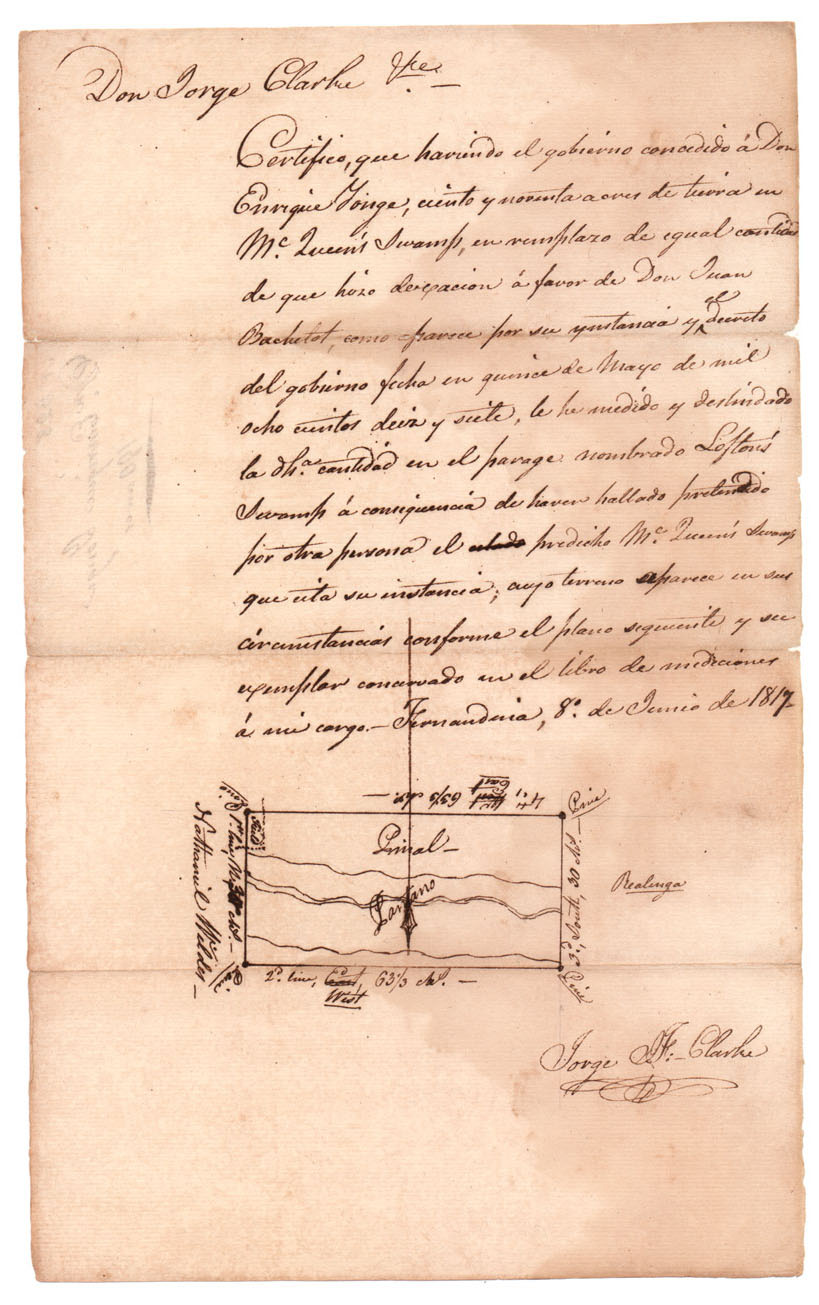 Don Jorge Clarke &ce.
Certifico, que haviendo el gobierno concedido á Don
Enrique Yonge, ciento y noventa acres de tierra en
Mc. Queen's Swamp, en remplazo de egual cantidad
de que hizo dexacion á favor de Don Juan
Bachelot, como aparece por su ynstancia y el decreto
del gobierno fecha en quince de Mayo de mil
ocho cientos deiz y siete, le he medido y deslindado
la dha. cantidad en el parage nombrado Lofton's
Swamp á consiquencia de haver hallado pretendido
por otra persona el predicho Mc. Queen's Swamp
que cita su instancia; cuyo terreno aparece en sus
circumstancias conforme el plano seguiente y su
exemplar concervado en el libro de mediciones
á mi cargo. - Fernandina, 8o. de Junio de 1817-
4a. East 63⅓ chs. -
Pine
Pinal -
Pantano
Realenga
Nathaniel Wilds -
3a. South, 30 chs. -
Pine
2d. line, East, 63⅓ chs. -
West
Jorge J. F. Clarke